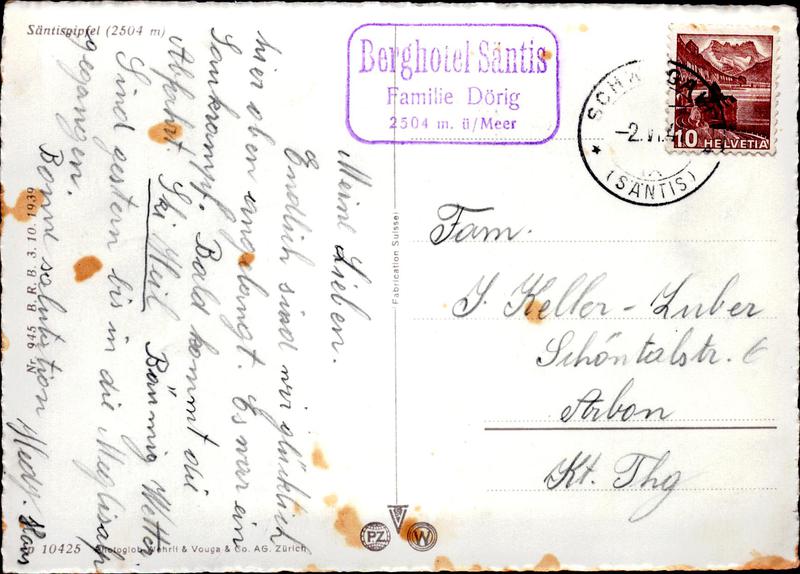 Säntisgipfel (2504 m)
Berghotel Säntis
Familie Dörig
2504 m. ü/Meer
SCHW
-2.VI.4
(SÄNTIS)
10 HELVETIA
Meine Lieben.
Endlich sind wir glücklich
hier oben angelangt. Es war ein
Saukrampf. Bald kommt die
Abfahrt. Ski Heil Bäumig Wetter
Sind gestern bis in die Meglisalp
gegangen.
Bonne salutation Hedy. Hans
Fam.
J. Keller-Zuber
Schöntalstr. 6
Arbon
Kt. Thg
Fabrication Suisse
Nr. 945 B. R. B. 3. 10. 1939
PZ W
10425 Photoglob-Wehrli & Vouga & Co. AG. Zürich